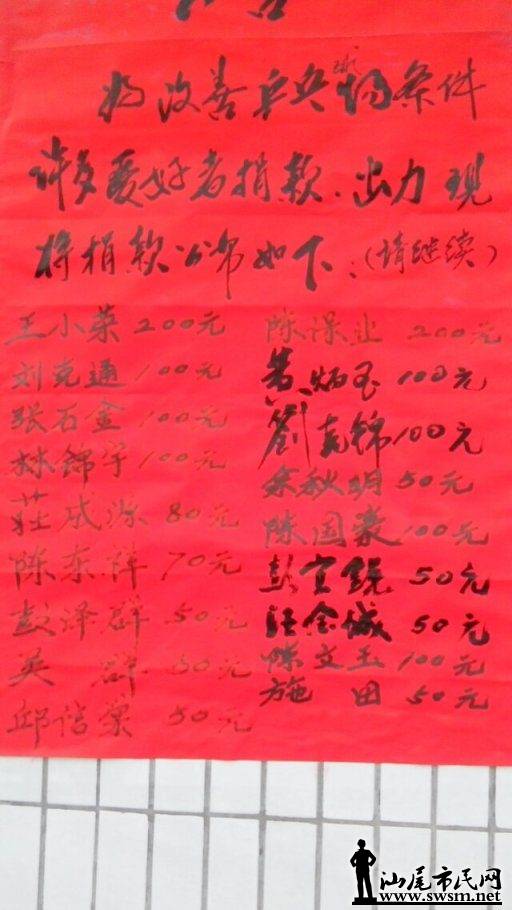 为改善乒乓球场条件
许多爱好者捐款、出力现
将捐款公布如下:(请继续)
王小菜 200元
刘克通 100元
张石金 100元
林锦宇 100元
莊成源 80元
陈东祥 70元
彭泽群 50元
英 群 50元
邱信棠 50元
陈保业 200元
黄炳百 100元
劉克锦 100元
余秋明 50元
陈国豪 100元
彭宜锐 50元
汪金城 50元
陈文玉 100元
施 田 50元
汕尾市民网
www.swsm.net